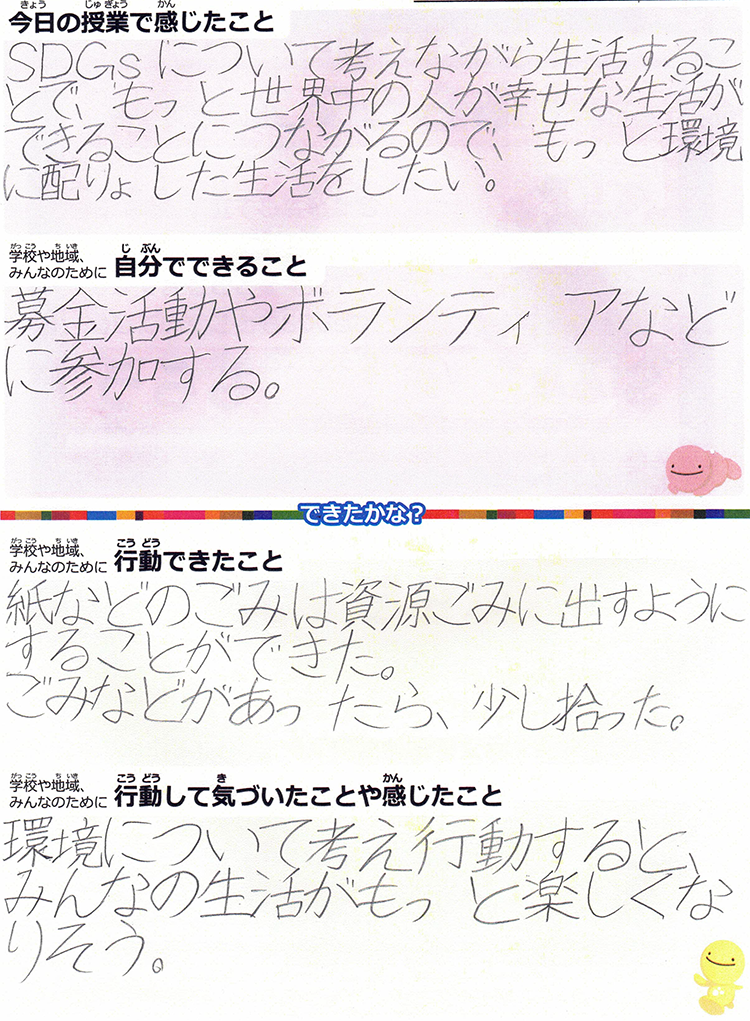 今日の授業で感じたこと
SDGsについて考えながら生活するこ
とで、もっと世界中の人が幸せな生活が
できることにつながるので、もっと環境
に配りょした生活をしたい。
学校や地域、
みんなのために 自分でできること
募金活動やボランティアなど
に参加する。
できたかな？
学校や地域、
みんなのために 行動できたこと
紙などのごみは資源ごみに出すように
することができた。
ごみなどがあったら、少し拾った。
学校や地域、
みんなのために 行動して気づいたことや感じたこと
環境について考え行動すると、
みんなの生活がもっと楽しくな
りそう。